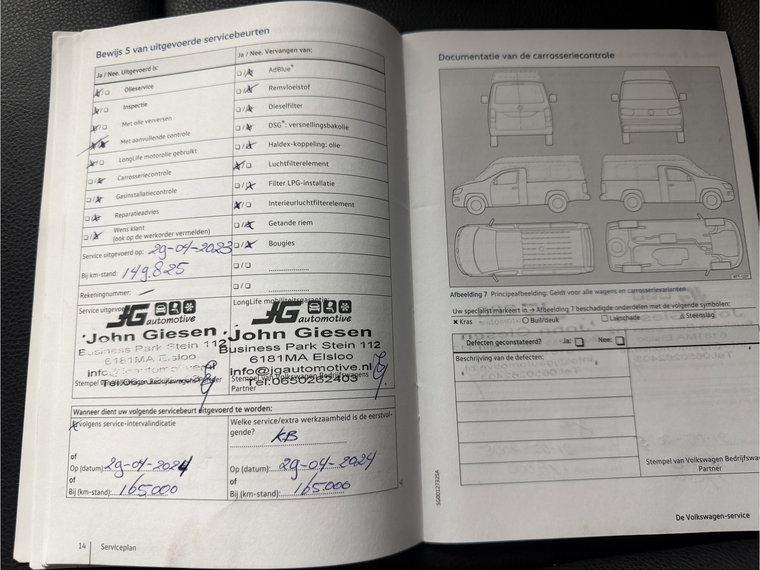 Bewijs 5 van uitgevoerde servicebeurten
Ja / Nee. Uitgevoerd is:
Olieservice
Inspectie
Met olie verversen
Met aanvullende controle
LongLife motorolie gebruikt
Carrosseriecontrole
Gasinstallatiecontrole
Reparatieadvies
Wens klant
(ook op de werkorder vermelden)
Service uitgevoerd op: 29-04-2023
Bij km-stand: 149.825
Rekeningnummer: -
Service uitgevoerd
JG
automotive
John Giesen
Business Park Stein 112
6181MA Elsloo
info@jgautomotive.nl
Ja / Nee. Vervangen van:
AdBlue®
Remvloeistof
Dieselfilter
DSG®: versnellingsbakolie
Haldex-koppeling: olie
Luchtfilterelement
Filter LPG-installatie
Interieurluchtfilterelement
Getande riem
Bougies
LongLife mobiliteitsgarantie:
JG
automotive
John Giesen
Business Park Stein 112
6181MA Elsloo
info@jgautomotive.nl
Stempel van Volkswagen Bedrijfswagens
Tel:0650262403
Partner
Wanneer dient uw volgende servicebeurt uitgevoerd te worden:
volgens service-intervalindicatie
of
Op (datum): 29-04-2024
of
Bij (km-stand): 165.000
Welke service/extra werkzaamheid is de eerstvol-
gende?
KB
Op (datum): 29-04-2024
of
Bij (km-stand): 165000
14 Serviceplan
Documentatie van de carrosseriecontrole
Afbeelding 7 Principeafbeelding: Geldt voor alle wagens en carrosserievarianten
Uw specialist markeert in → Afbeelding 7 beschadigde onderdelen met de volgende symbolen:
× Kras ○ Buil/deuk □ Lakschade △ Steenslag
Defecten geconstateerd? Ja: □ Nee: □
Beschrijving van de defecten:
Stempel van Volkswagen Bedrijfsw
Partner
De Volkswagen-service